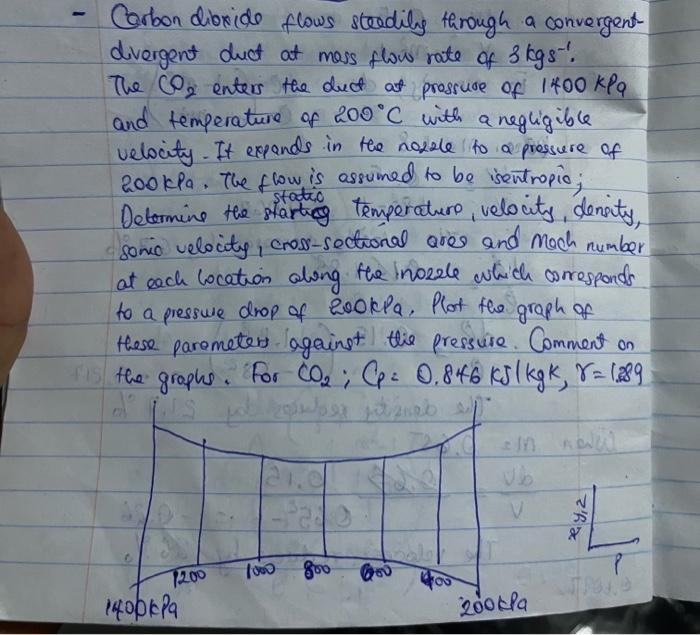 - Carbon dioxide flows steadily through a convergent-
divergent duct at mass flow rate of 3kgs⁻¹.
The CO₂ enters the duct at pressure of 1400 KPa
and temperature of 200°C with a negligible
velocity. It expands in the nozzle to a pressure of
200KPa. The flow is assumed to be isentropic;
static
Determine the temperature, velocity, density,
sonic velocity, cross-sectional area and Mach number
at each location along the nozzle which corresponds
to a pressure drop of 200KPa. Plot the graph of
these parameters against the pressure. Comment on
the graphs. For CO₂; Cp = 0.846 KJ/kgK, γ = 1.289
1200 1000 800 600 400
1400KPa 200KPa
P